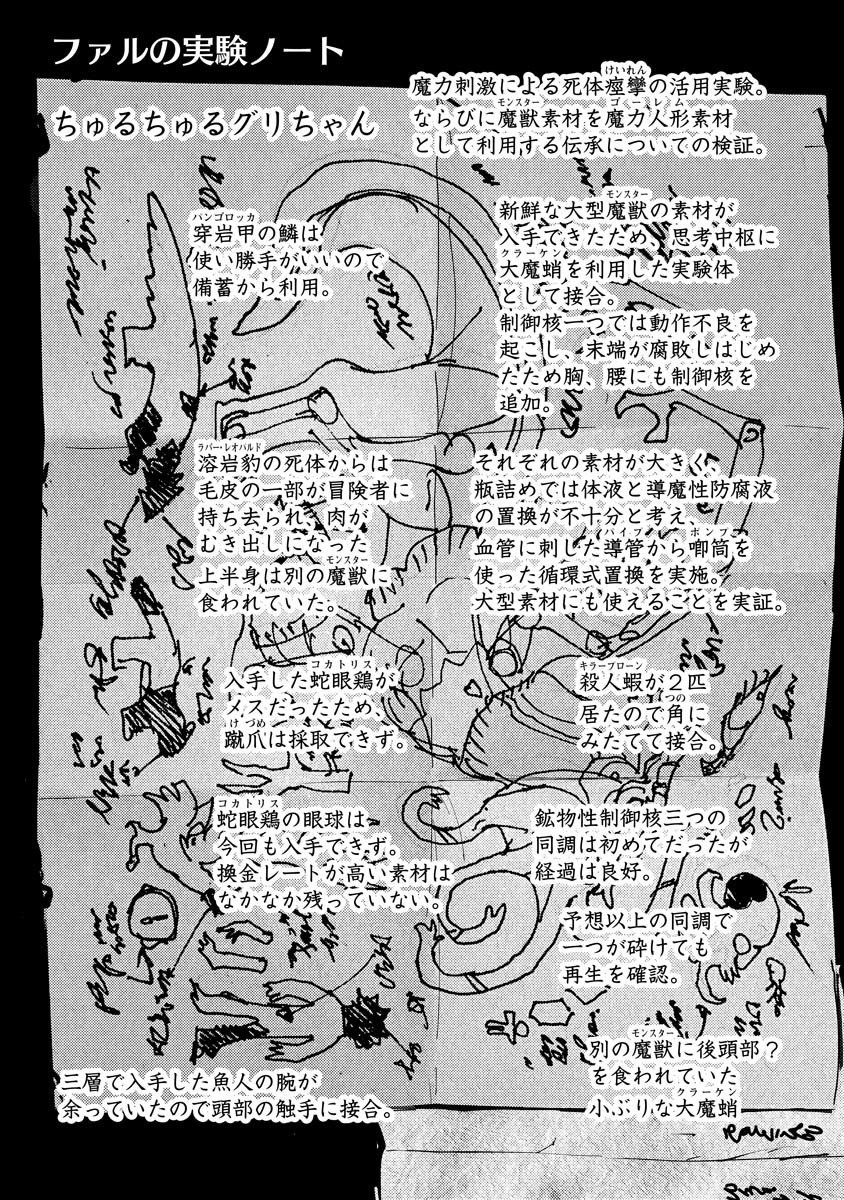 ファルの実験ノート
ちゅるちゅるグリちゃん
魔力刺激による死体痙攣の活用実験。
ならびに魔獣素材を魔力人形素材
として利用する伝承についての検証。
穿岩甲の鱗は
使い勝手がいいので
備蓄から利用。
新鮮な大型魔獣の素材が
入手できたため、思考中枢に
大魔蛸を利用した実験体
として接合。
制御核一つでは動作不良を
起こし、末端が腐敗しはじめ
たため胸、腰にも制御核を
追加。
溶岩豹の死体からは
毛皮の一部が冒険者に
持ち去られ、肉が
むき出しになった
上半身は別の魔獣に
食われていた。
それぞれの素材が大きく、
瓶詰めでは体液と導魔性防腐液
の置換が不十分と考え、
血管に刺した導管から喞筒を
使った循環式置換を実施。
大型素材にも使えることを実証。
入手した蛇眼鶏が
メスだったため、
蹴爪は採取できず。
殺人蝦が2匹
居たので角に
みたてて接合。
蛇眼鶏の眼球は
今回も入手できず。
換金レートが高い素材は
なかなか残っていない。
鉱物性制御核三つの
同調は初めてだったが
経過は良好。
予想以上の同調で
一つが砕けても
再生を確認。
三層で入手した魚人の腕が
余っていたので頭部の触手に接合。
別の魔獣に後頭部?
を食われていた
小ぶりな大魔蛸